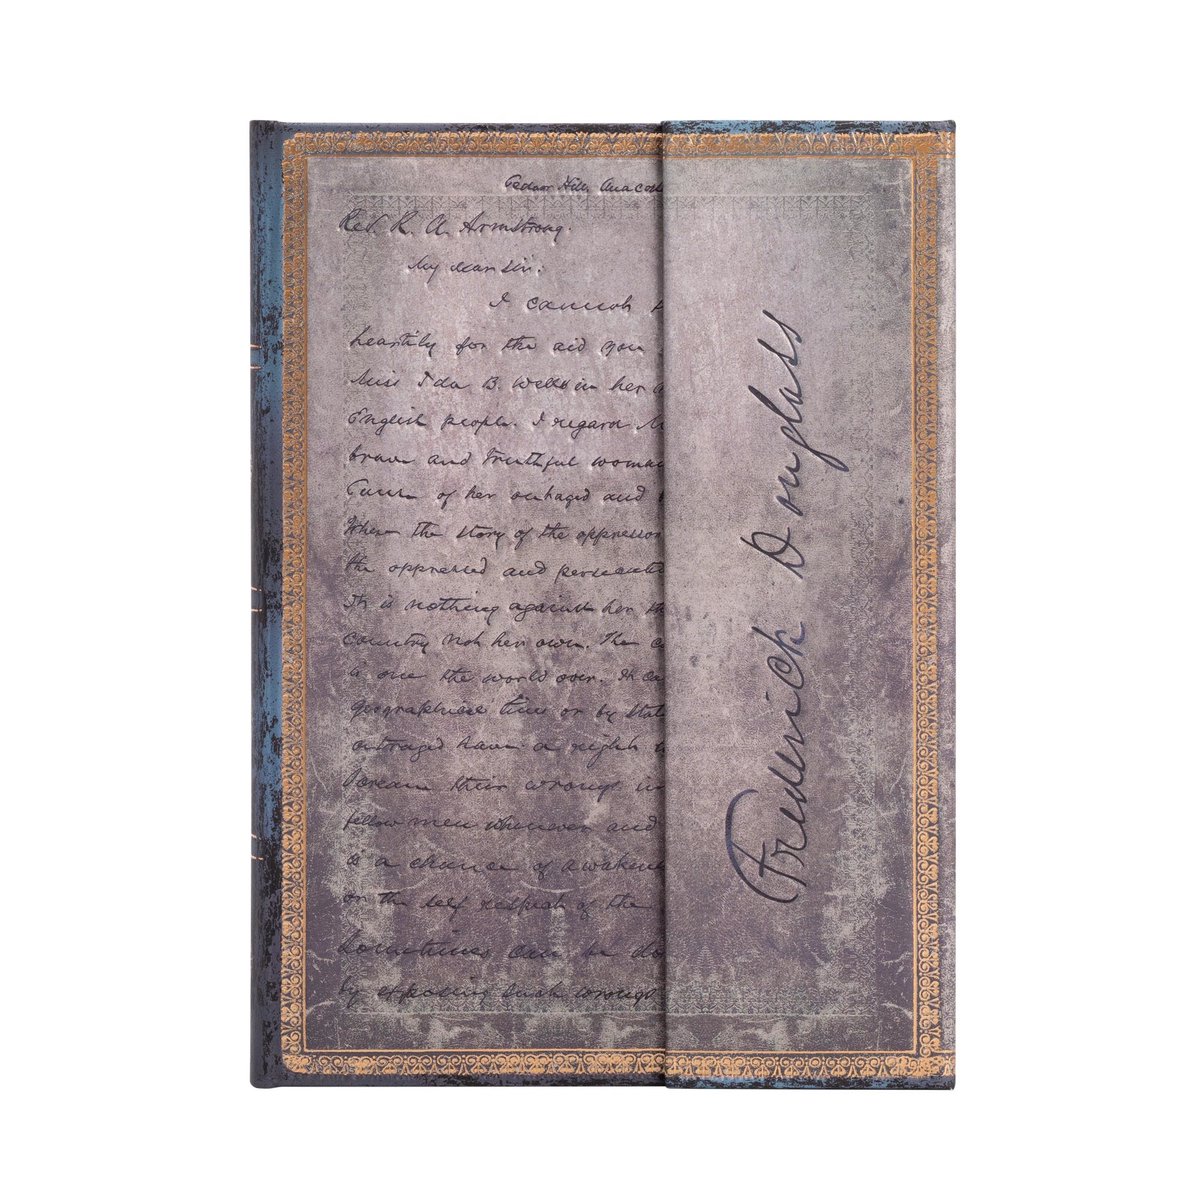 Cedar Hill Anaco
Rev. R. A. Armstrong.
My dear sir:
I cannot
heartily for the aid you
Miss Ida B. Wells in her
English people. I regard
brave and truthful woman
Cause of her outraged and
When the story of the oppression
the oppressed and persecuted
It is nothing against her
country not her own. The
is one the world over. It
geographical lines or by State
outraged have a right
scream their wrongs in
fellow men whenever and
is a chance of awakening
on the self respect of the
Sometimes can be do
by exposing such wrongs
Frederick Douglass